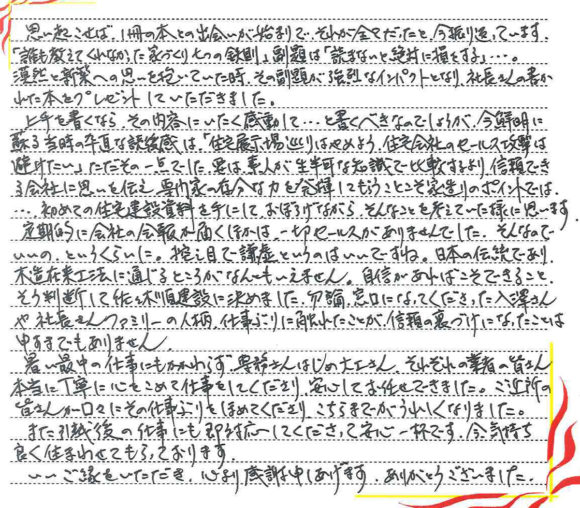 思い起こせば、1冊の本との出会いが始まりで、それが全てだったと、今振り返っています。
「誰も教えてくれなかった家づくり七つの鉄則」副題は「読まないと絶対に損をする」…。
漠然と新築への思いを抱いていた時、その副題が強烈なインパクトとなり、社長さんの書か
れた本をプレゼントしていただきました。
上手を書くなら、その内容にいたく感動して…と書くべきなのでしょうが、今鮮明に
蘇る当時の卒直な読後感は、「住宅展示場巡りはやめよう、住宅会社のセールス攻撃は
避けたい」ただその一点でした。要は、素人が生半可な知識で比較するより、信頼でき
る会社に思いを伝え、専門家の存分な力を発揮してもらうことこそ家造りのポイントでは
…。初めての住宅建設資料を手にして、おぼろげながら、そんなことを考えていた様に思います。
定期的に会社の会報が届くほかは、一切セールスがありませんでした。そんなので
いいの、というくらいに。控え目で謙虚というのはいいですね。日本の伝統であり、
木造在来工法に通じるところがなんともいえません。自信があればこそできること、
そう判断して佐々木順建設に決めました。勿論、窓口になってくださった入澤さん
や社長さんファミリーの人柄、仕事ぶりに触れたことが、信頼の裏づけになったことは
申すまでもありません。
暑い最中の仕事にもかかわらず、専務さんはじめ大工さん、それぞれの業者の皆さん
本当に丁寧に心をこめて仕事をしてくださり、安心してお任せできました。ご近所の
皆さんが口々にその仕事ぶりをほめてくださり、こちらまでがうれしくなりました。
また引越後の仕事にも即対応してくださって安心一杯です。今、気持ち
良く住まわせてもらっております。
いいご縁をいただき、心より感謝申しあげます。ありがとうございました。